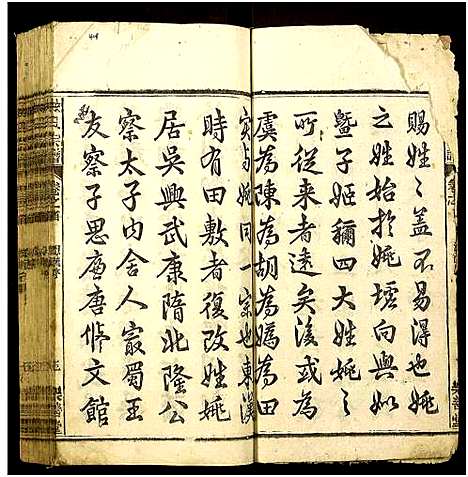 賜姓〻蓋不易得也姚
之姓始於姚墟向與姒
暨子姬稱四大姓姚之
所從来者遠矣後或為
虞為陳為胡為媯為田
實與姚同一宗也東漢
時有田敷者復改姓姚
居吳興武康隋北隆公
察太子内舍人最蜀王
友察子思廉唐修文館
樂善堂